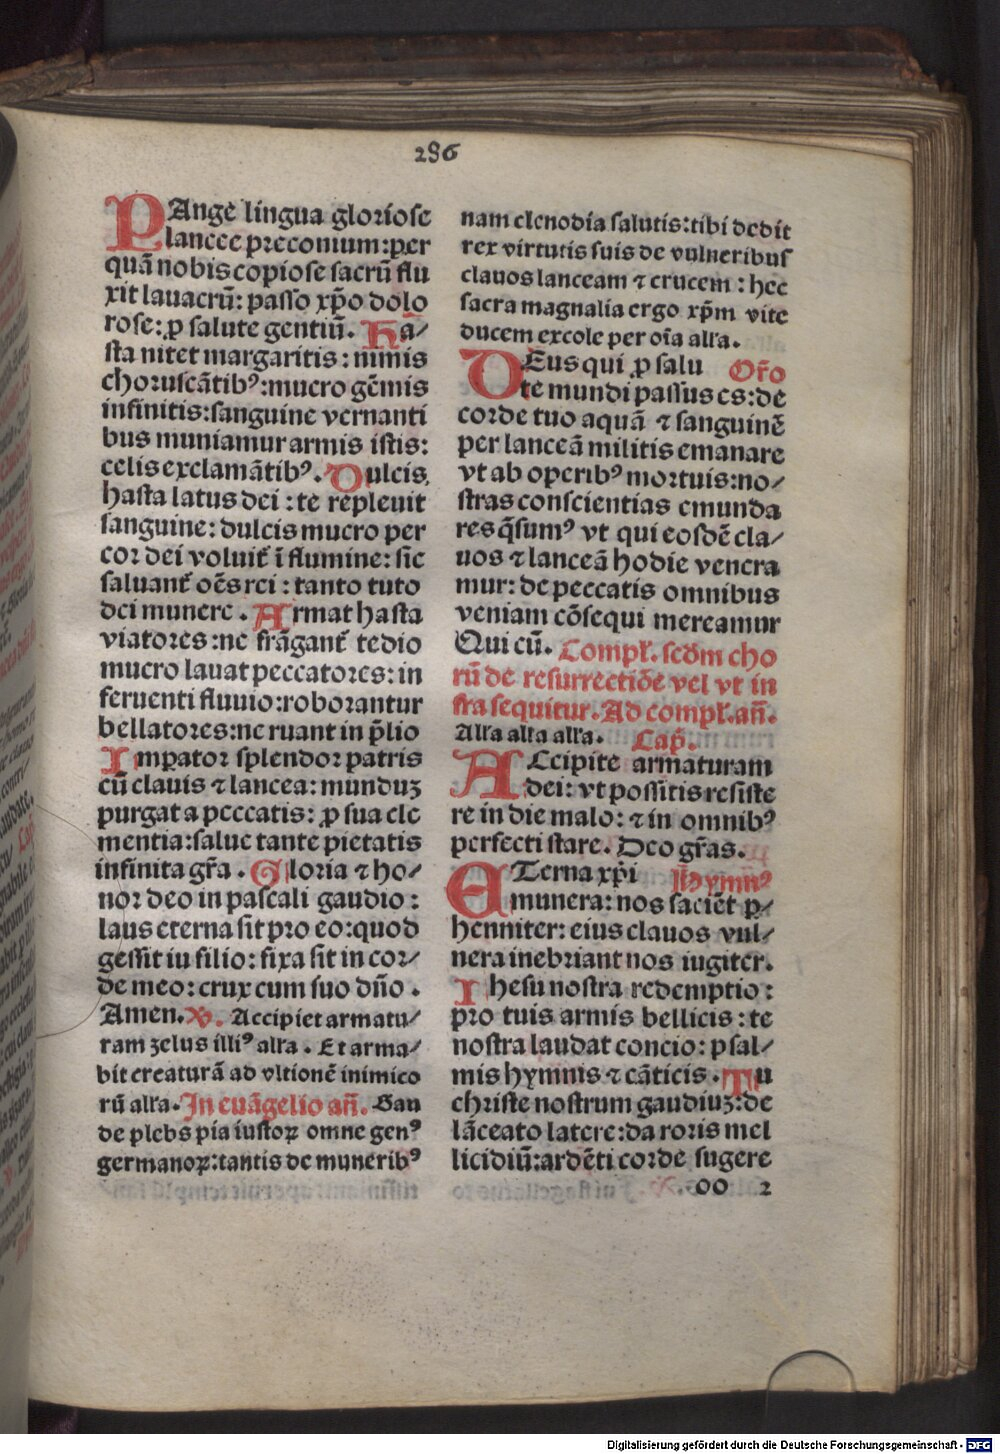 286
PAnge lingua gloriose
lancee preconium:per
quā nobis copiose sacrū flu
xit lauacrū: passo xp̄o dolo
rose: ꝓ salute gentiū. Ha/
sta nitet margaritis: nimis
choruscātibꝰ:mucro gēmis
infinitis:sanguine vernanti
bus muniamur armis istis:
celis exclamātibꝰ. Dulcis
hasta latus dei : te repleuit
sanguine: dulcis mucro per
cor dei voluit̄ ī flumine: sic
saluant̄ oēs rei : tanto tuto
dei munere . Armat hasta
viatores :ne frāgant̄ tedio
mucro lauat peccatores: in
feruenti fluuio:roborantur
bellatores:ne ruant in p̄lio
Imꝑator splendor patris
cū clauis ⁊ lancea: munduꝫ
purgat a peccatis: ꝓ sua cle
mentia:salue tante pietatis
infinita gr̄a . Gloria ⁊ ho/
nor deo in pascali gaudio :
laus eterna sit pro eo:quod
gessit iu filio: fixa sit in cor/
de meo: crux cum suo dn̄o .
Amen. V. Accipiet armatu/
ram zelus illiꝰ alr̄a . Et arma/
bit creaturā ad vltionē inimico
rū alr̄a. In euāgelio an̄. Gau
de plebs pia iustoꝝ omne genꝰ
germanoꝝ:tantis de muneribꝰ
nam clenodia salutis:tibi dedit
rex virtutis suis de vulneribus
clauos lanceam ⁊ crucem : hec
sacra magnalia ergo xp̄m vite
ducem excole per oīa alr̄a.
DEus qui ꝓ salu Or̄o
te mundi passus es: de
corde tuo aquā ⁊ sanguinē
per lanceā militis emanare
vt ab operibꝰ mortuis:no/
stras conscientias emunda
res q̄sumꝰ vt qui eosdē cla/
uos ⁊ lanceā hodie venera
mur: de peccatis omnibus
veniam cōsequi mereamur
Qui cū. Compl̄. scd̄m cho
rū de resurrectiōe vel vt in
fra sequitur. Ad compl̄. an̄.
Alr̄a alr̄a alr̄a. Cap̄.
ACcipite armaturam
dei: vt possitis resiste
re in die malo: ⁊ in omnibꝰ
perfecti stare. Deo gr̄as.
ETerna xp̄i Hymnꝰ
munera: nos saciēt ꝑ/
henniter: eius clauos vul/
nera inebriant nos iugiter.
Ihesu nostra redemptio :
pro tuis armis bellicis : te
nostra laudat concio: psal/
mis hymnis ⁊ cāticis . Tu
christe nostrum gaudiuꝫ:de
lāceato latere:da roris mel
licidiū:ardēti corde sugere
oo 2
Digitalisierung gefördert durch die Deutsche Forschungsgemeinschaft - DFG